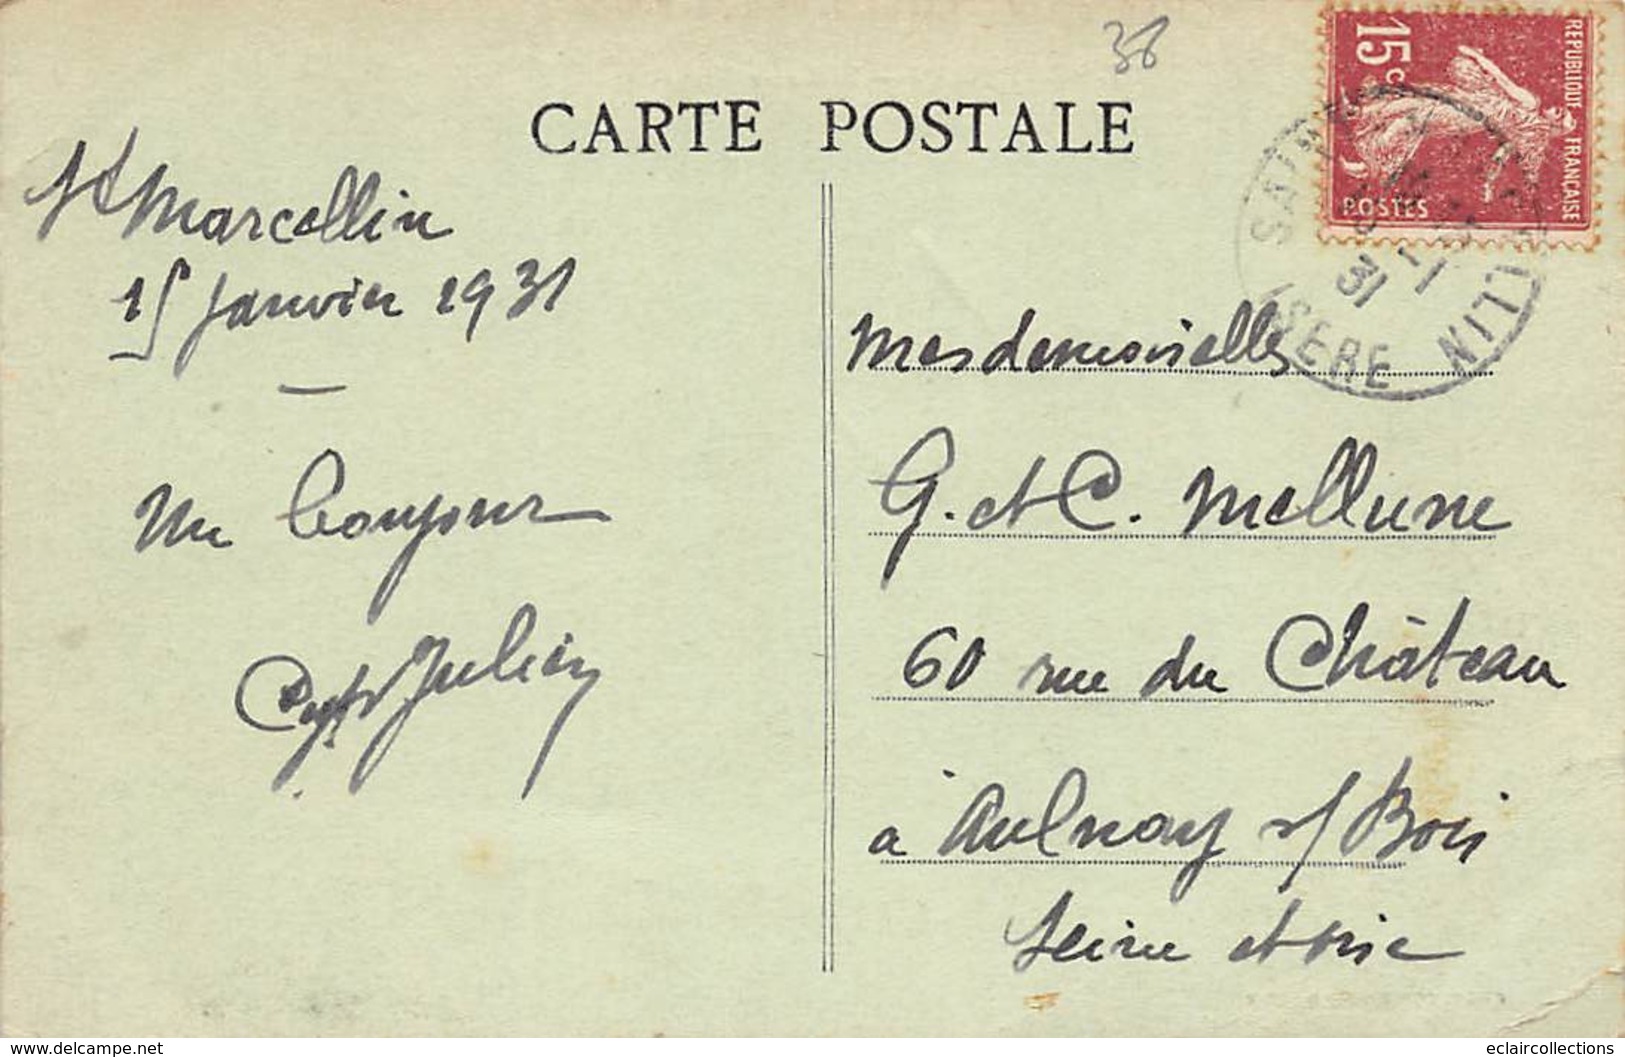 38
CARTE POSTALE
REPUBLIQUE FRANÇAISE
15c
POSTES
ISERE
31
St Marcellin
15 Janvier 1931
Un bonjour
Julien
Mesdemoiselles
G. et C. Mellune
60 rue du Château
à Aulnay s/ Bois
Seine et Oise
www.delcampe.net
eclaircollections